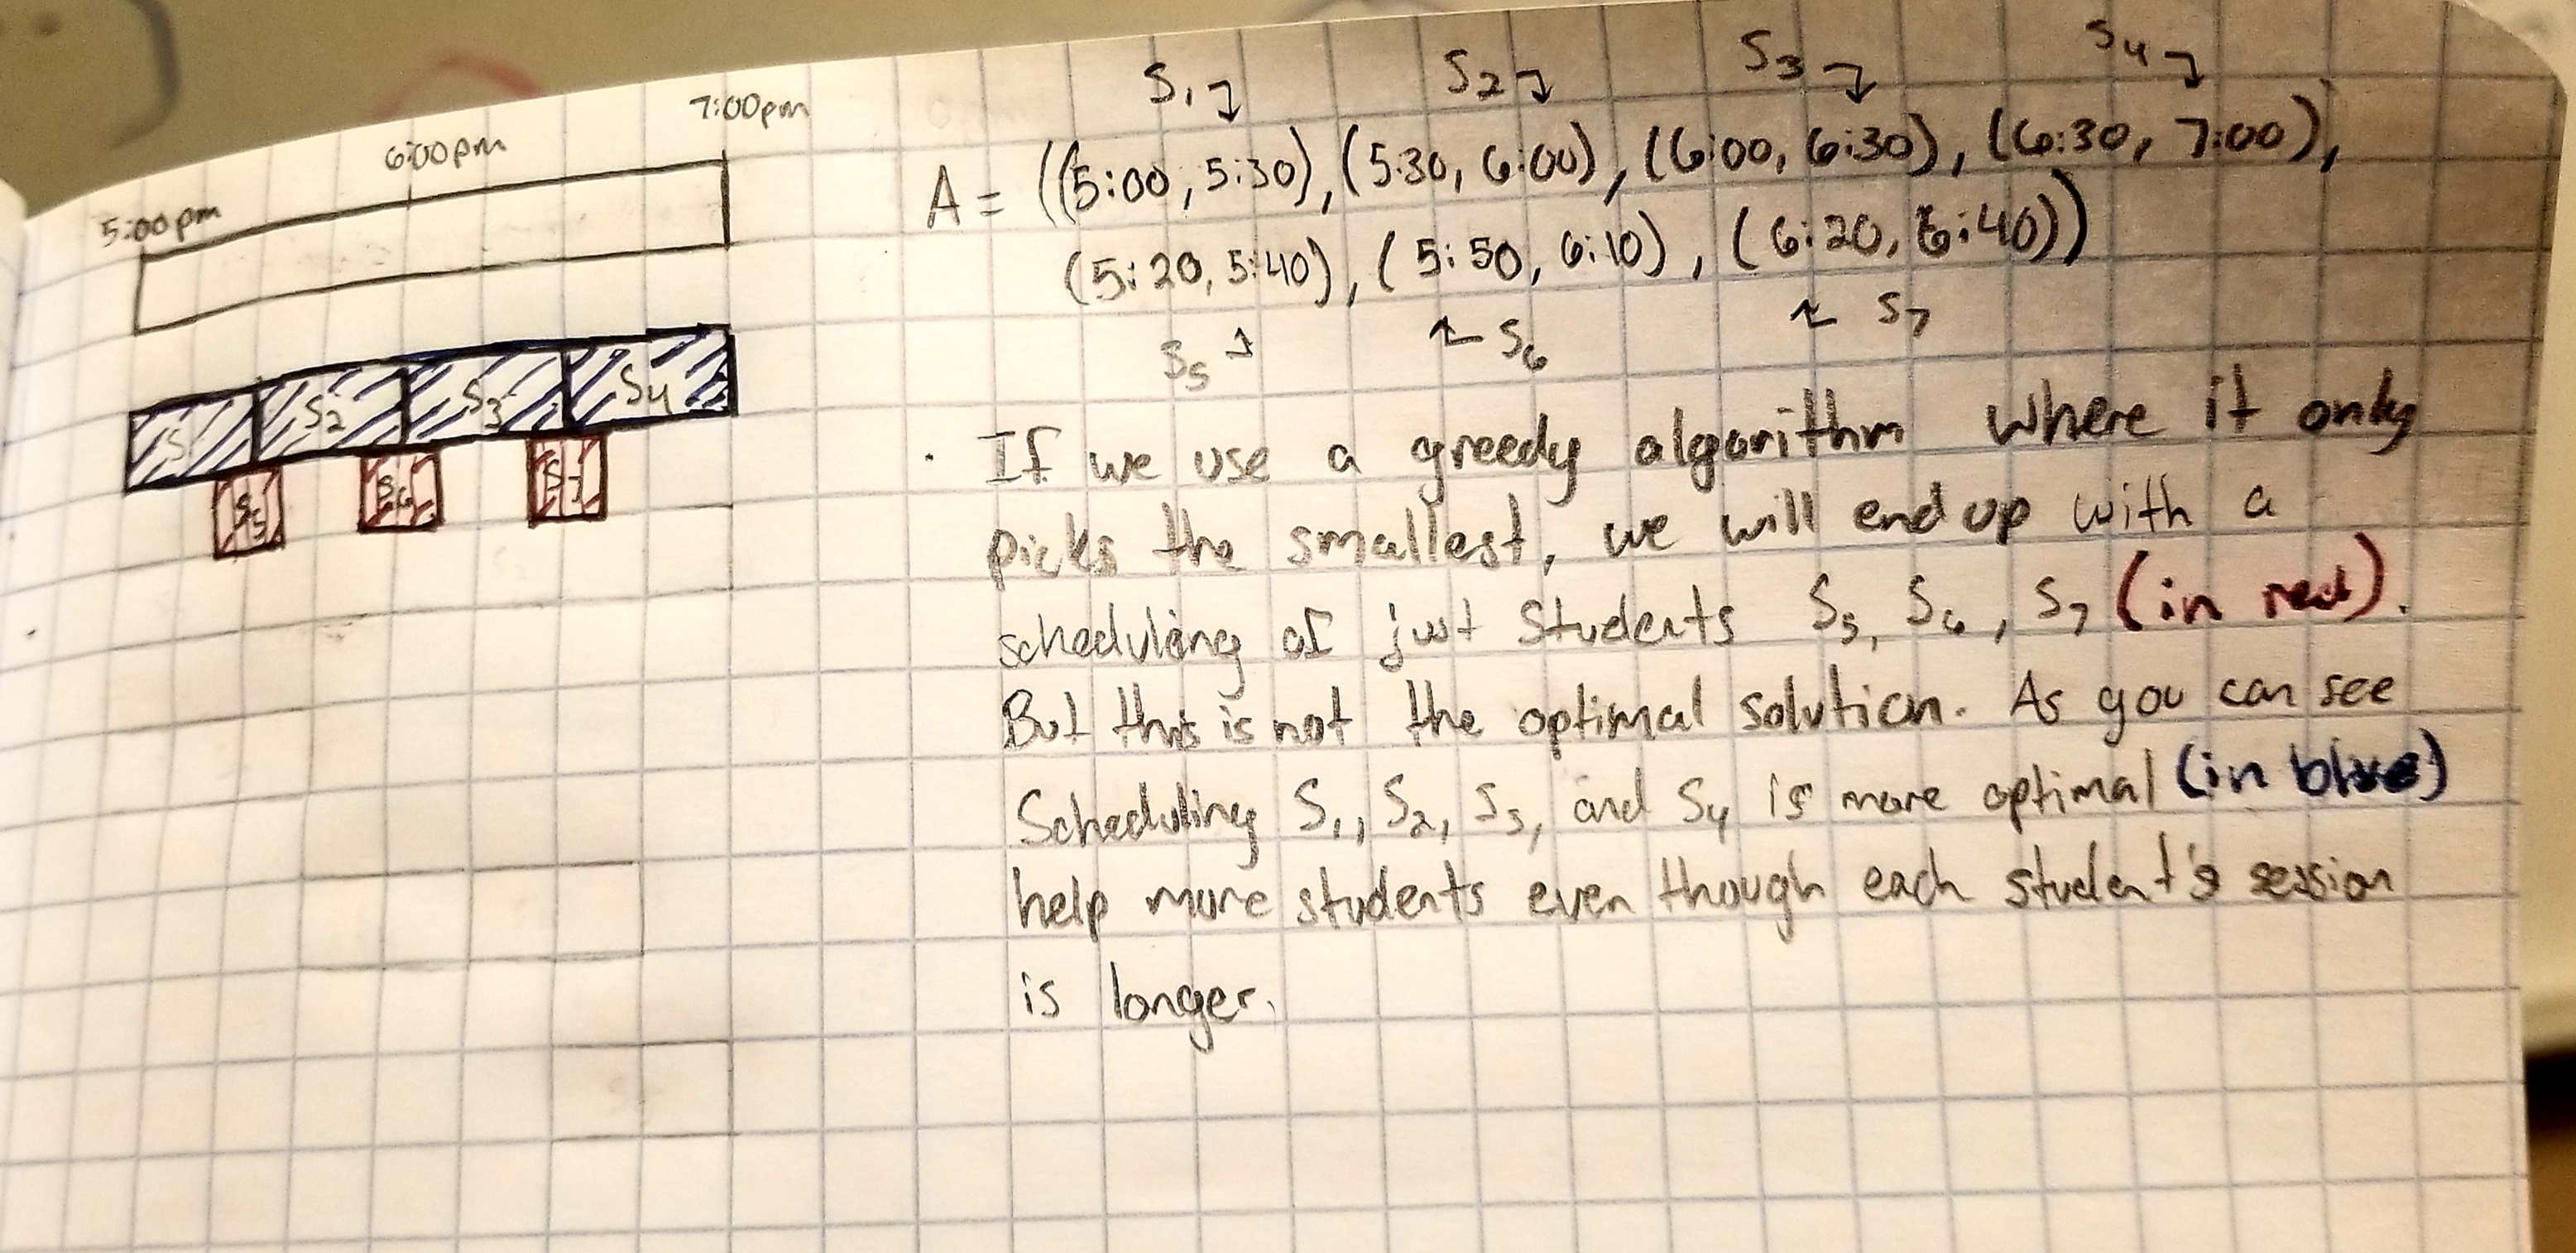 5:00pm
6:00pm
7:00pm
S1 S2 S3 S4
S5 S6 S7
S1 S2 S3 S4
A = ((5:00, 5:30), (5:30, 6:00), (6:00, 6:30), (6:30, 7:00),
(5:20, 5:40), (5:50, 6:10), (6:20, 6:40))
S5 S6 S7
· If we use a greedy algorithm where it only
picks the smallest, we will end up with a
scheduling of just students S5, S6, S7 (in red).
But this is not the optimal solution. As you can see
Scheduling S1, S2, S3, and S4 is more optimal (in blue)
help more students even though each student's session
is longer.